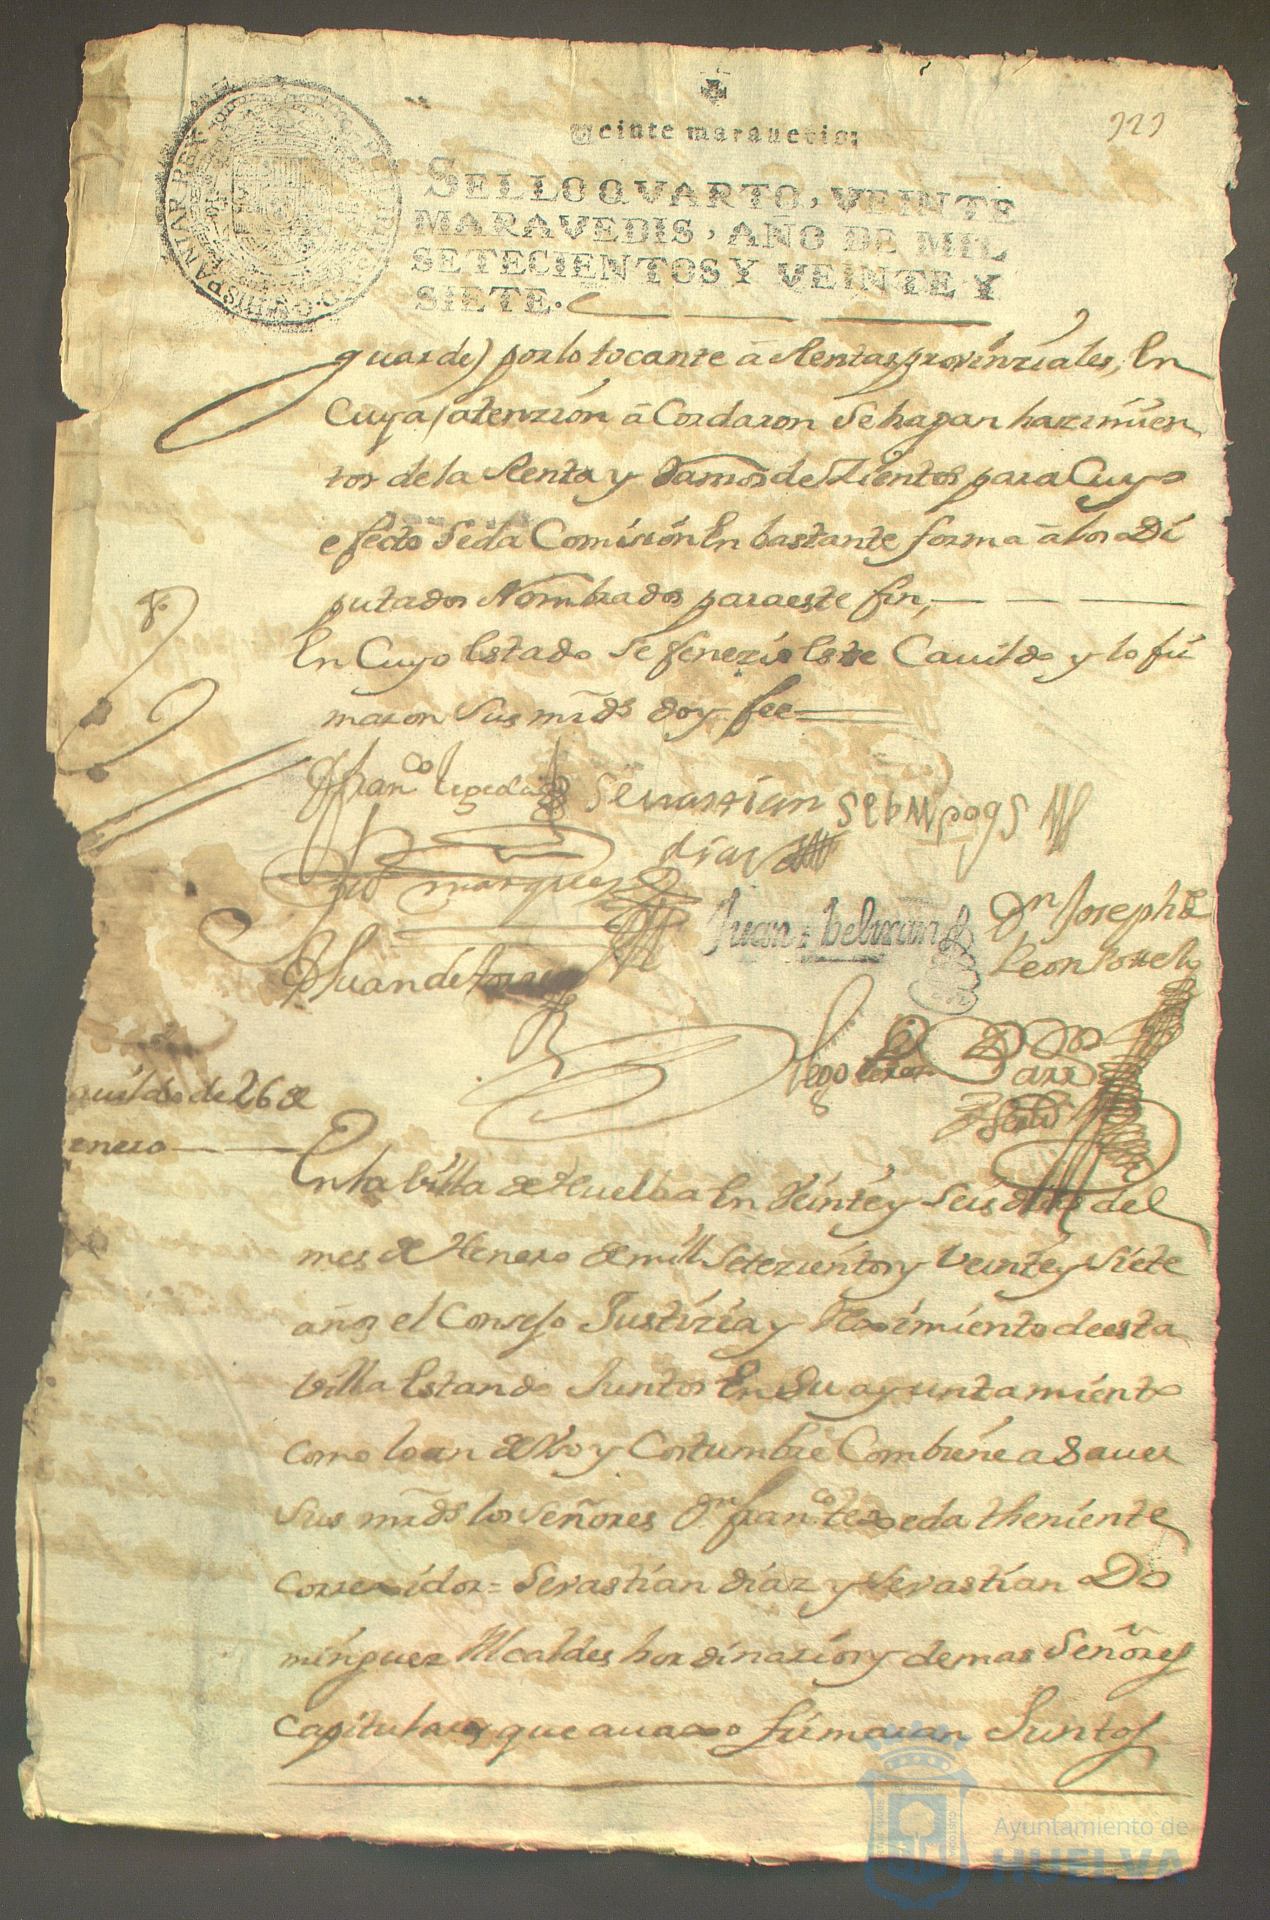 Veinte marauedis;
929
SELLO QVARTO, VEINTE
MARAVEDIS, AÑO DE MIL
SETECIENTOS Y VEINTE Y
SIETE.
HISPANIARVM REX
guarde) por lo tocante â Rentas provinziales, En
Cuya atenzion âCordaron Se hagan hazimien
tos de la Renta y Ramos de Zientos para Cuyo
efecto Se da Comision En bastante forma â los Di
putados Nombrados para este fin,
En Cuyo Estado Se fenezio Este Cauildo y lo fir
maron Sus mrds doy fee
Franco tegeda
Seuastian
dias
marques
Juan beltran
Dn Joseph de
Leon
Juan de torres
Diego
auildo de 26 de
enero
En la Villa de Huelba En Veinte y Seis dias del
mes de Henero de mill Setezientos y Veinte y Siete
años el Consejo Justizia y Reximiento de esta
Villa Estando Juntos En Su ayuntamiento
como lo an de Uso y Costumbre Combiene a Sauer
Sus mrds los Señores Dn franco texeda theniente
correxidor = Sevastian diaz y Sevastian Do
minguez Alcaldes hordinarios y demas Señores
Capitulares que auaxo firmaran Juntos
Ayuntamiento de
HUELVA